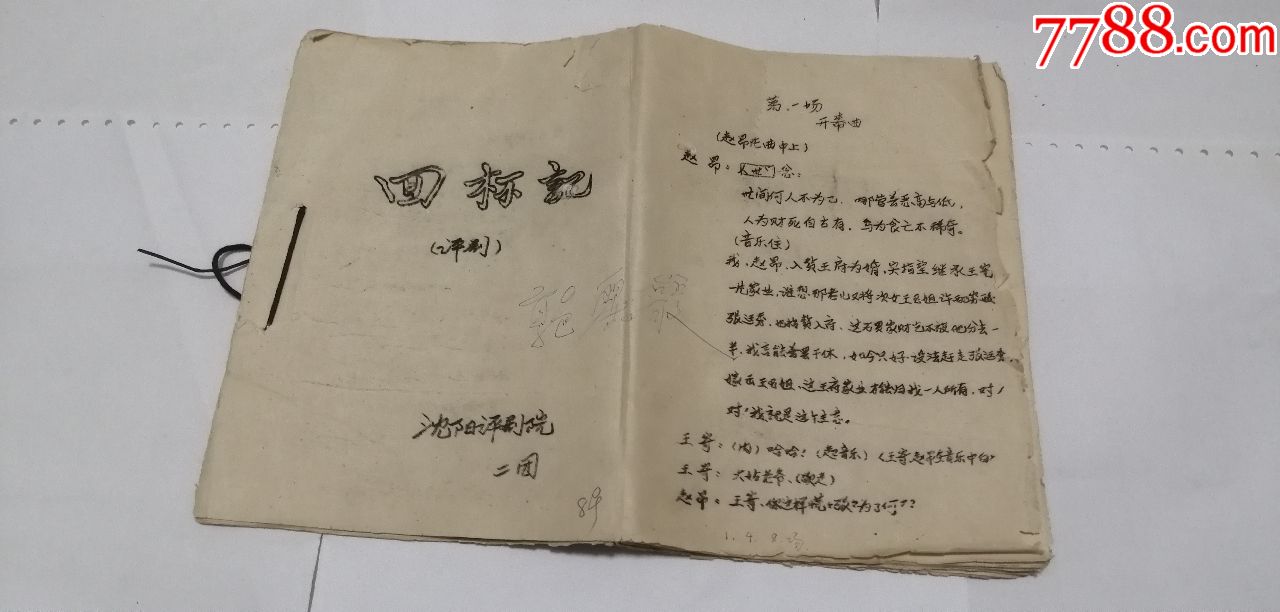 7788.com
回杯記
(评剧)
沈阳评剧院
二团
89
第一场
开幕曲
(赵昂在曲中上)
赵昂: 念:
世间何人不为己,哪管善恶高与低,
人为财死自古有,鸟为食亡不稀奇。
(音乐住)
我,赵昂,入赘王府为婿,实指望继承王宪
一片家业,谁想那老儿又将次女王二姐许配
张廷秀,也招赘入府,这万贯家财岂不被他分去一
半,我岂能善罢干休,如今只好设法赶走张廷秀,
嫁出王二姐,这王府家业才能归我一人所有,对!
对!我就是这个主意。
王哥:(内)哈哈!(起音乐)
王哥:大姑老爷、
赵昂:王哥、你这样慌慌张张为了何?
1.4.8.